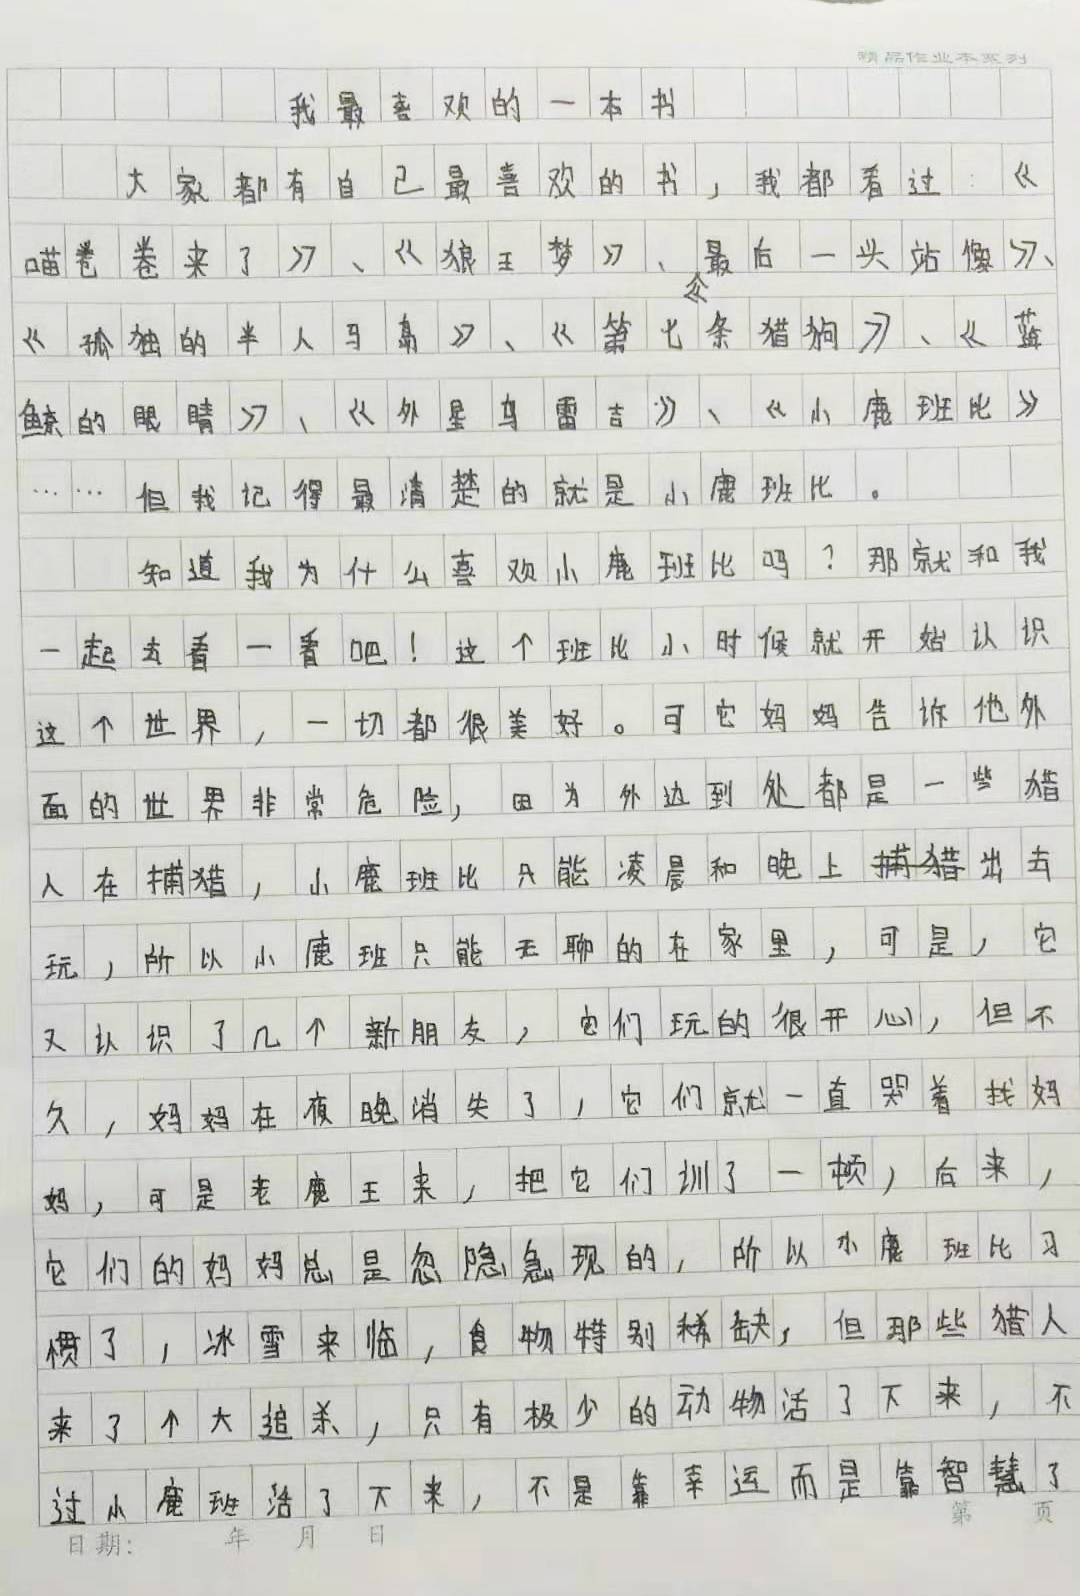 精品作业本系列
我最喜欢的一本书
大家都有自己最喜欢的书，我都看过：《
喵卷卷来了》、《狼王梦》、《最后一头站像》、
《孤独的半人马岛》、《第七条猎狗》、《蓝
鲸的眼睛》、《外星鸟雷吉》、《小鹿班比》
……但我记得最清楚的就是小鹿班比。
知道我为什么喜欢小鹿班比吗？那就和我
一起去看一看吧！这个班比小时候就开始认识
这个世界，一切都很美好。可它妈妈告诉他外
面的世界非常危险，因为外边到处都是一些猎
人在捕猎，小鹿班比只能凌晨和晚上捕猎出去
玩，所以小鹿班只能无聊的在家里，可是，它
又认识了几个新朋友，它们玩的很开心，但不
久，妈妈在夜晚消失了，它们就一直哭着找妈
妈，可是老鹿王来，把它们训了一顿，后来，
它们的妈妈总是忽隐急现的，所以小鹿班比习
惯了，冰雪来临，食物特别稀缺，但那些猎人
来了个大追杀，只有极少的动物活了下来，不
过小鹿班活了下来，不是靠幸运而是靠智慧了
日期： 年 月 日 第 页